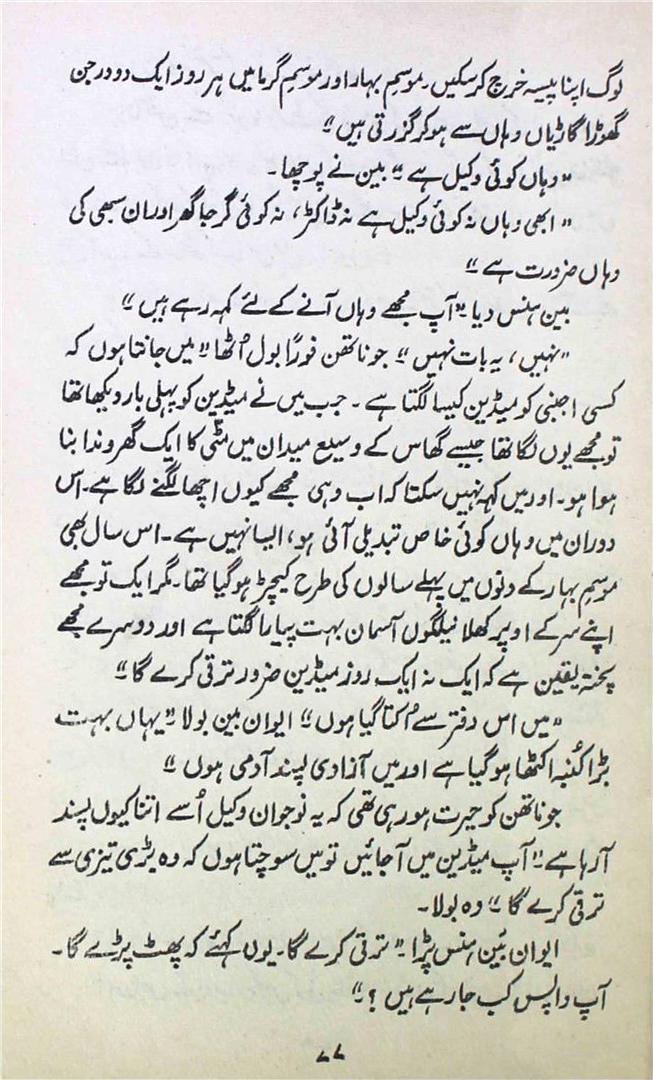 لوگ اپنا پیسہ خرچ کر سکیں۔ موسمِ بہار اور موسمِ گرما میں ہر روز ایک دو درجن
گھوڑا گاڑیاں وہاں سے ہو کر گزرتی ہیں“
”وہاں کوئی وکیل ہے“ بین نے پوچھا۔
”ابھی وہاں نہ کوئی وکیل ہے نہ ڈاکٹر، نہ کوئی گرجا گھر اور ان سبھی کی
وہاں ضرورت ہے“
بین ہنس دیا ”آپ مجھے وہاں آنے کے لئے کہہ رہے ہیں“
”نہیں، یہ بات نہیں“ جوناتھن فوراً بول اُٹھا ”میں جانتا ہوں کہ
کسی اجنبی کو میڈین کیسا لگتا ہے۔ جب میں نے میڈین کو پہلی بار دیکھا تھا
تو مجھے یوں لگا تھا جیسے گھاس کے وسیع میدان میں مٹی کا ایک گھروندا بنا
ہوا ہو۔ اور میں کہہ نہیں سکتا کہ اب وہی مجھے کیوں اچھا لگنے لگا ہے۔ اس
دوران میں وہاں کوئی خاص تبدیلی آئی ہو، ایسا نہیں ہے۔ اس سال بھی
موسمِ بہار کے دنوں میں پہلے سالوں کی طرح کیچڑ ہو گیا تھا۔ مگر ایک تو مجھے
اپنے سر کے اوپر کھلا نیلگوں آسمان بہت پیارا لگتا ہے اور دوسرے مجھے
پختہ یقین ہے کہ ایک نہ ایک روز میڈین ضرور ترقی کرے گا“
”میں اس دفتر سے اُکتا گیا ہوں“ ایوان بین بولا ”یہاں بہت
بڑا کُنبہ اکٹھا ہو گیا ہے اور میں آزادی پسند آدمی ہوں“
جوناتھن کو حیرت ہو رہی تھی کہ یہ نوجوان وکیل اُسے اتنا کیوں پسند
آ رہا ہے۔ ”آپ میڈین میں آ جائیں تو میں سوچتا ہوں کہ وہ بڑی تیزی سے
ترقی کرے گا“ وہ بولا۔
ایوان بَین ہنس پڑا۔ ”ترقی کرے گا۔ یوں کہئے کہ پھٹ پڑے گا۔
آپ واپس کب جا رہے ہیں؟“
۷۷